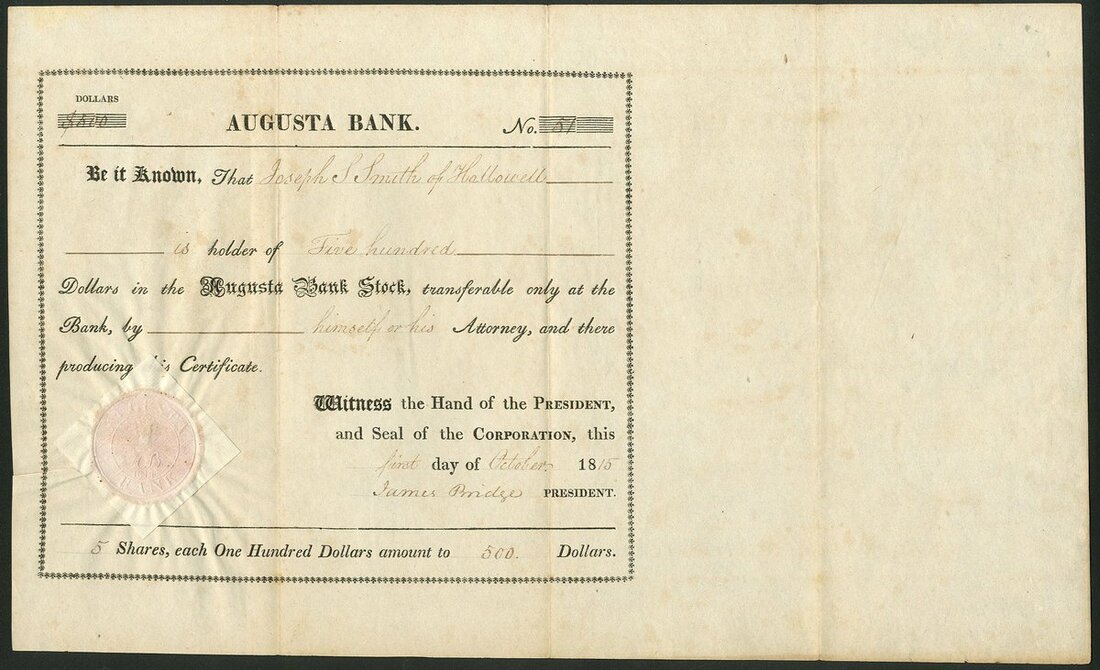 DOLLARS
$500
AUGUSTA BANK.
No. 51
Be it Known, That Joseph S Smith of Hallowell
is holder of Five hundred
Dollars in the Augusta Bank Stock, transferable only at the
Bank, by himself or his Attorney, and there
producing his Certificate.
Witness the Hand of the PRESIDENT,
and Seal of the CORPORATION, this
first day of October 1815
James Bridge PRESIDENT.
BANK
5 Shares, each One Hundred Dollars amount to 500. Dollars.